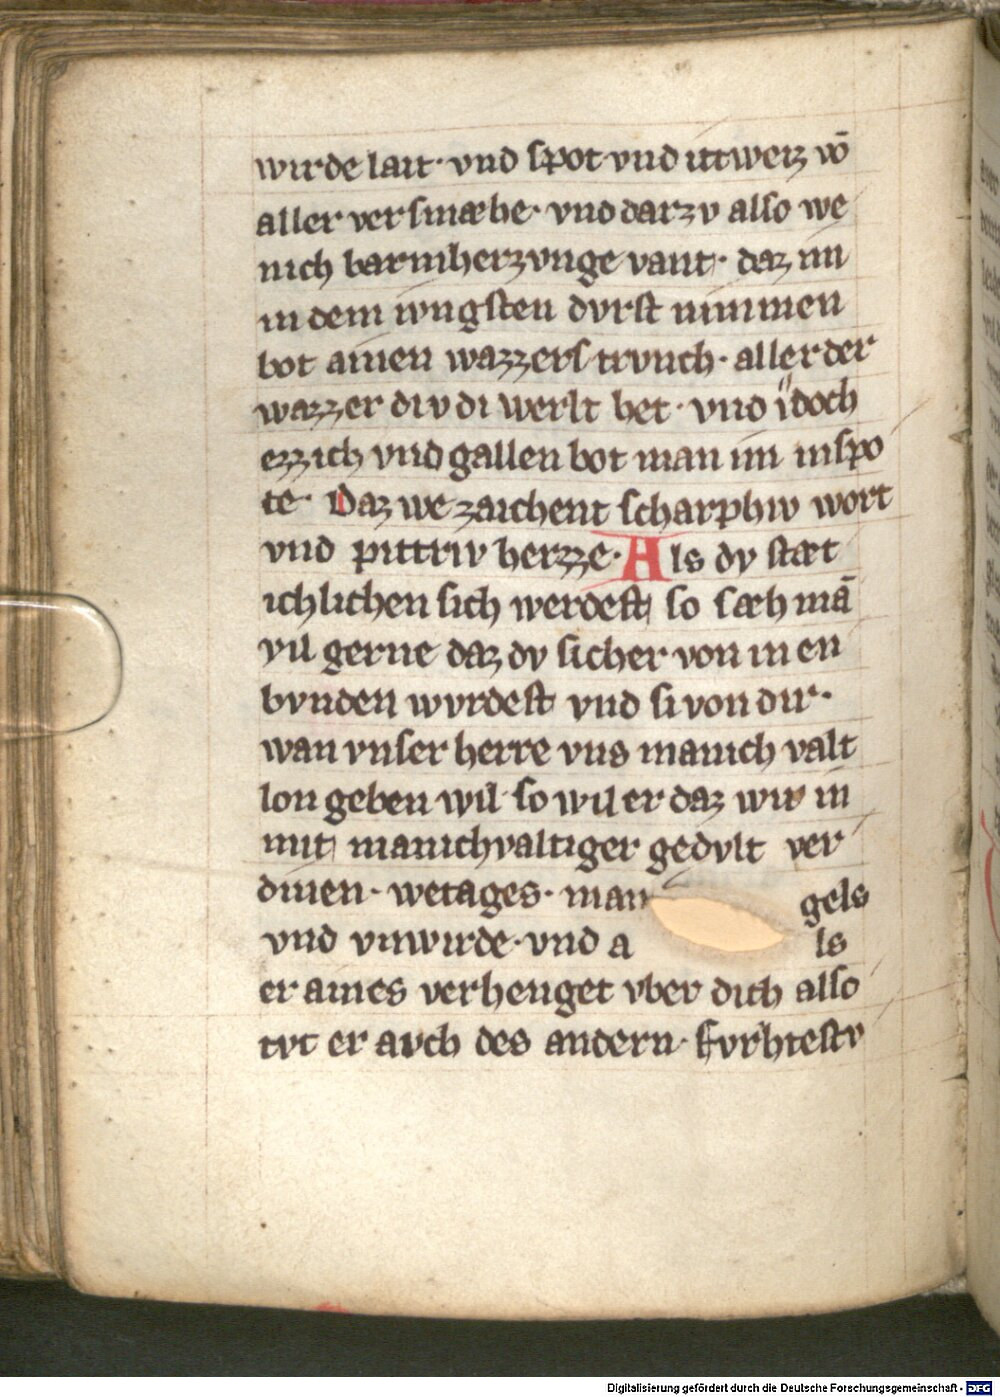 wirde lait· vnd spot vnd itweiz vō
aller versmæhe· vnd darzv also we
nich barmherzvnge vant· daz im
in dem ivngsten dvrst nimmen
bot ainen wazzers trvnch· aller der
wazzer div di werlt het· vnd idoch
ezzich vnd gallen bot man im inspo
te· Daz wezaichent scharphiv wort
vnd pittriv herzze· Als dv stæt
ichlichen sich werdest so sæh mā
vil gerne daz dv sicher von in en
bvnden wvrdest vnd si von dir·
wan vnser herre vns manich valt
lon geben wil so wil er daz wir in
mit manichvaltiger gedvlt ver
dinen· wetages· man gels
vnd vnwirde· vnd a ls
er aines verhenget vber dich also
tvt er avch des andern· fvrhtestv
Digitalisierung gefördert durch die Deutsche Forschungsgemeinschaft - DFG